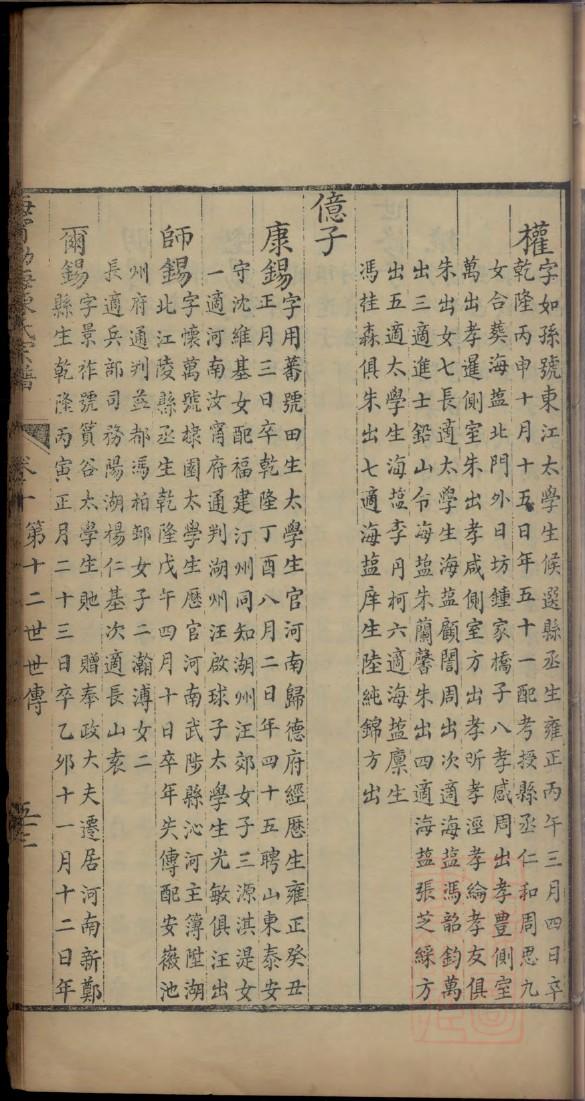 權字如孫號東江太學生候選縣丞生雍正丙午三月四日卒
乾隆丙申十月十五日年五十一配考授縣丞仁和周思九
女合葬海鹽北門外日坊鍾家橋子八孝感周出孝豊側室
萬出孝暹側室朱出孝咸側室方出孝昕孝溼孝綸孝友俱
朱出女七長適太學生海鹽顧誾周出次適海鹽馮韶鈞萬
出三適進士鉛山令海鹽朱蘭馨朱出四適海鹽張芝綵方
出五適太學生海鹽李丹柯六適海鹽廩生
馮桂森俱朱出七適海鹽庠生陸純錦方出
億子
康錫字用蕃號田生太學生官河南歸德府經歷生雍正癸丑
正月三日卒乾隆丁酉八月二日年四十五聘山東泰安
守沈維基女配福建汀州同知湖州汪郊女子三源淇湜女
一適河南汝甯府通判湖州汪啟球子太學生光敏俱汪出
師錫字懷萬號棣園太學生歷官河南武陟縣沁河主簿陞湖
北江陵縣丞生乾隆戊午四月十日卒年失傳配安徽池
州府通判益都馮柏邨女子二瀚溥女二
長適兵部司務陽湖楊仁基次適長山袁
爾錫字景祚號篔谷太學生貤贈奉政大夫遷居河南新鄭
縣生乾隆丙寅正月二十三日卒乙卯十一月十二日年
第十二世世傳